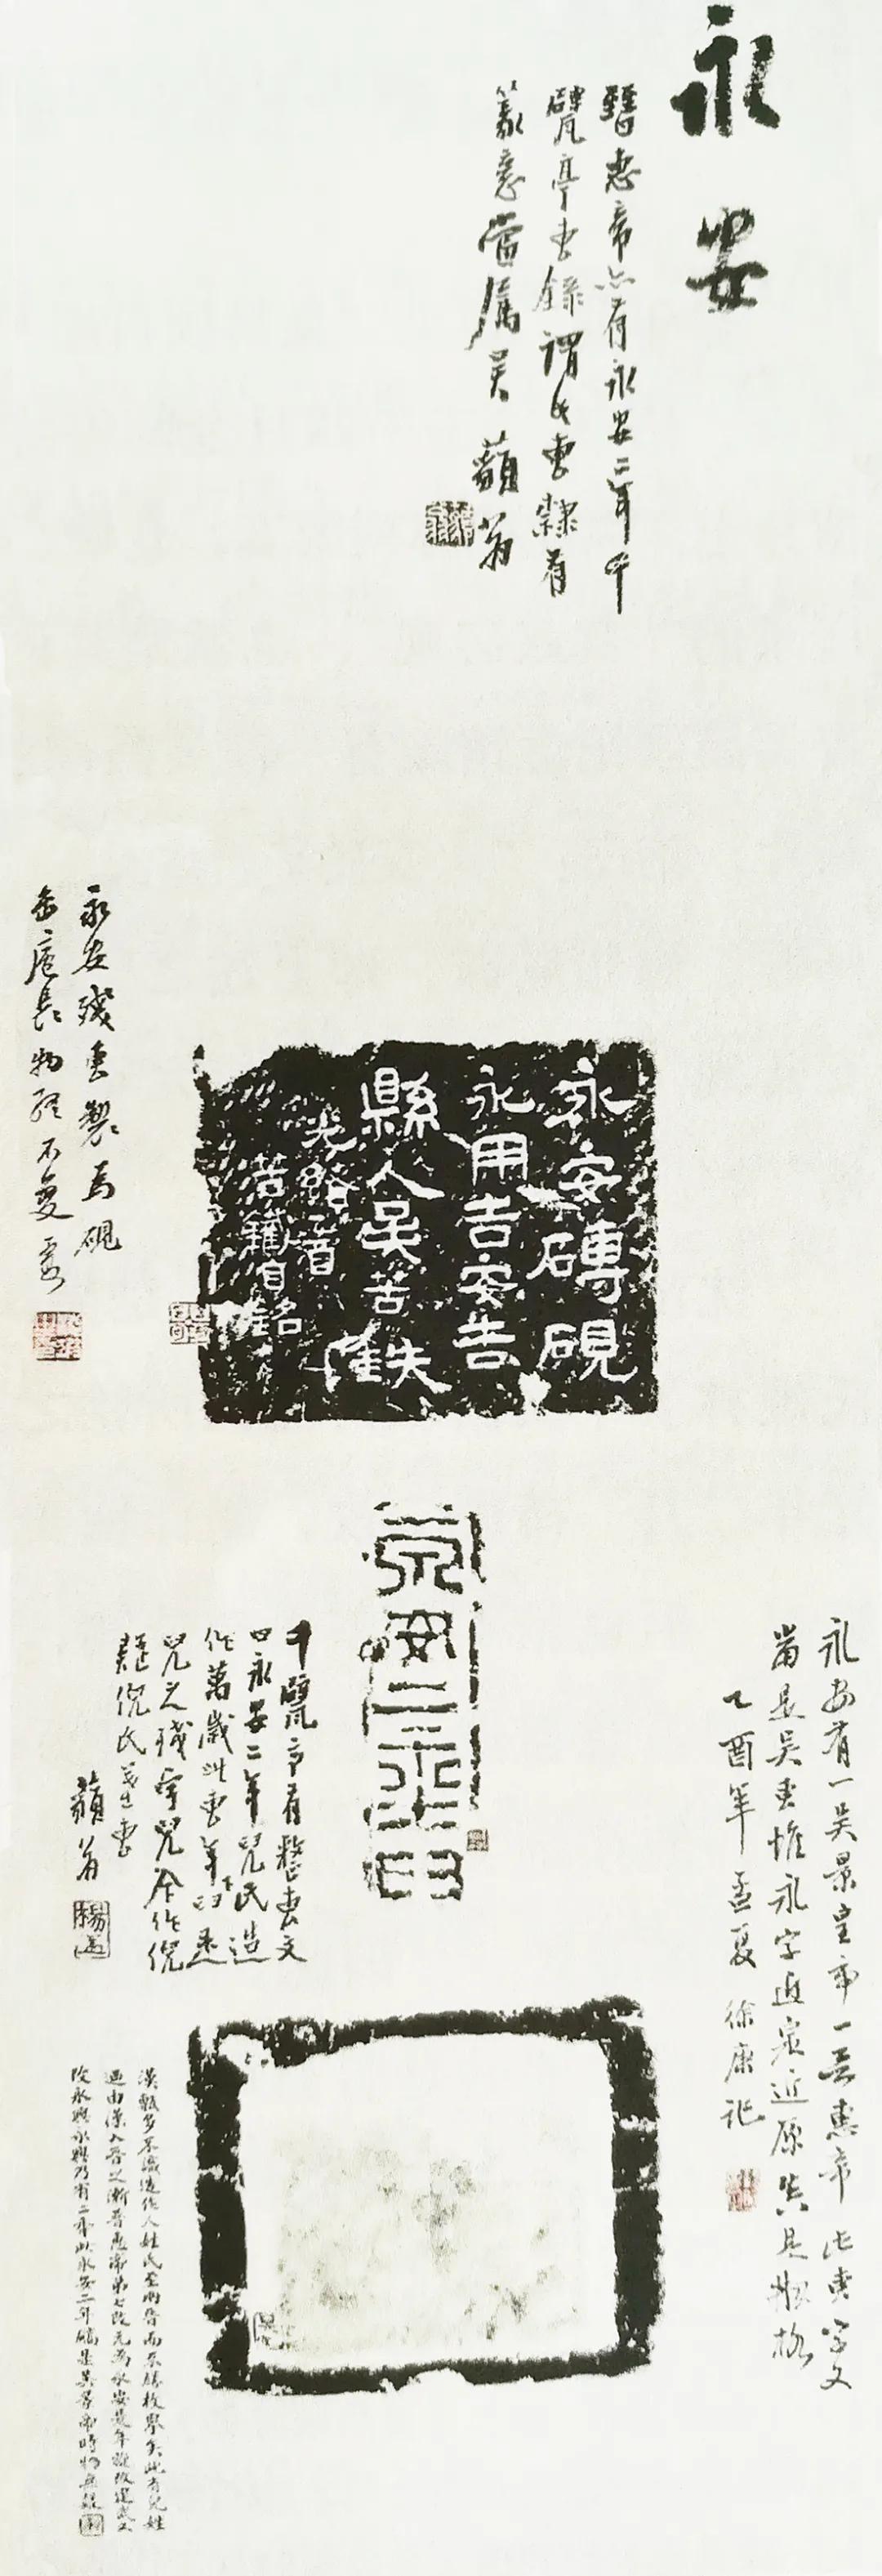 永安
晉惠帝亦有永安二年千
甓亭專錄謂此專隸有
篆意當屬吳 蘋翁
永安殘專製為硯
缶廬長物醉不
永安磚硯
永用吉安吉
縣人吳苦鐵
光緒
苦鐵自銘
永安二年
千甓亭有整專文
曰永安二年兒氏造
作萬歲此專年下曰是
兒之殘字兒今作倪
疑倪氏墓專
蘋翁
楊峴
永安有一吳景皇帝一晉惠帝此專字文
當是吳專惟永字近泉近原
乙酉年孟夏 徐康記
漢甎多不識造作人姓氏至兩晉而不勝枚舉矣此有兒姓
逼由漢入晉之漸晉惠帝第七改元為永安是年號改建武又
改永興永興乃有二年此永安二年甎是吳景帝時物無疑